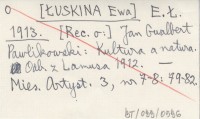 O [ŁUSKINA Ewa] E.Ł.
1913. [Rec. o:] Jan Gwalbert
Pawlikowski: Kultura a natura.
Odb. z Lamusa 1912. —
Mies. Artyst. 3, nr 7-8: 79-82.